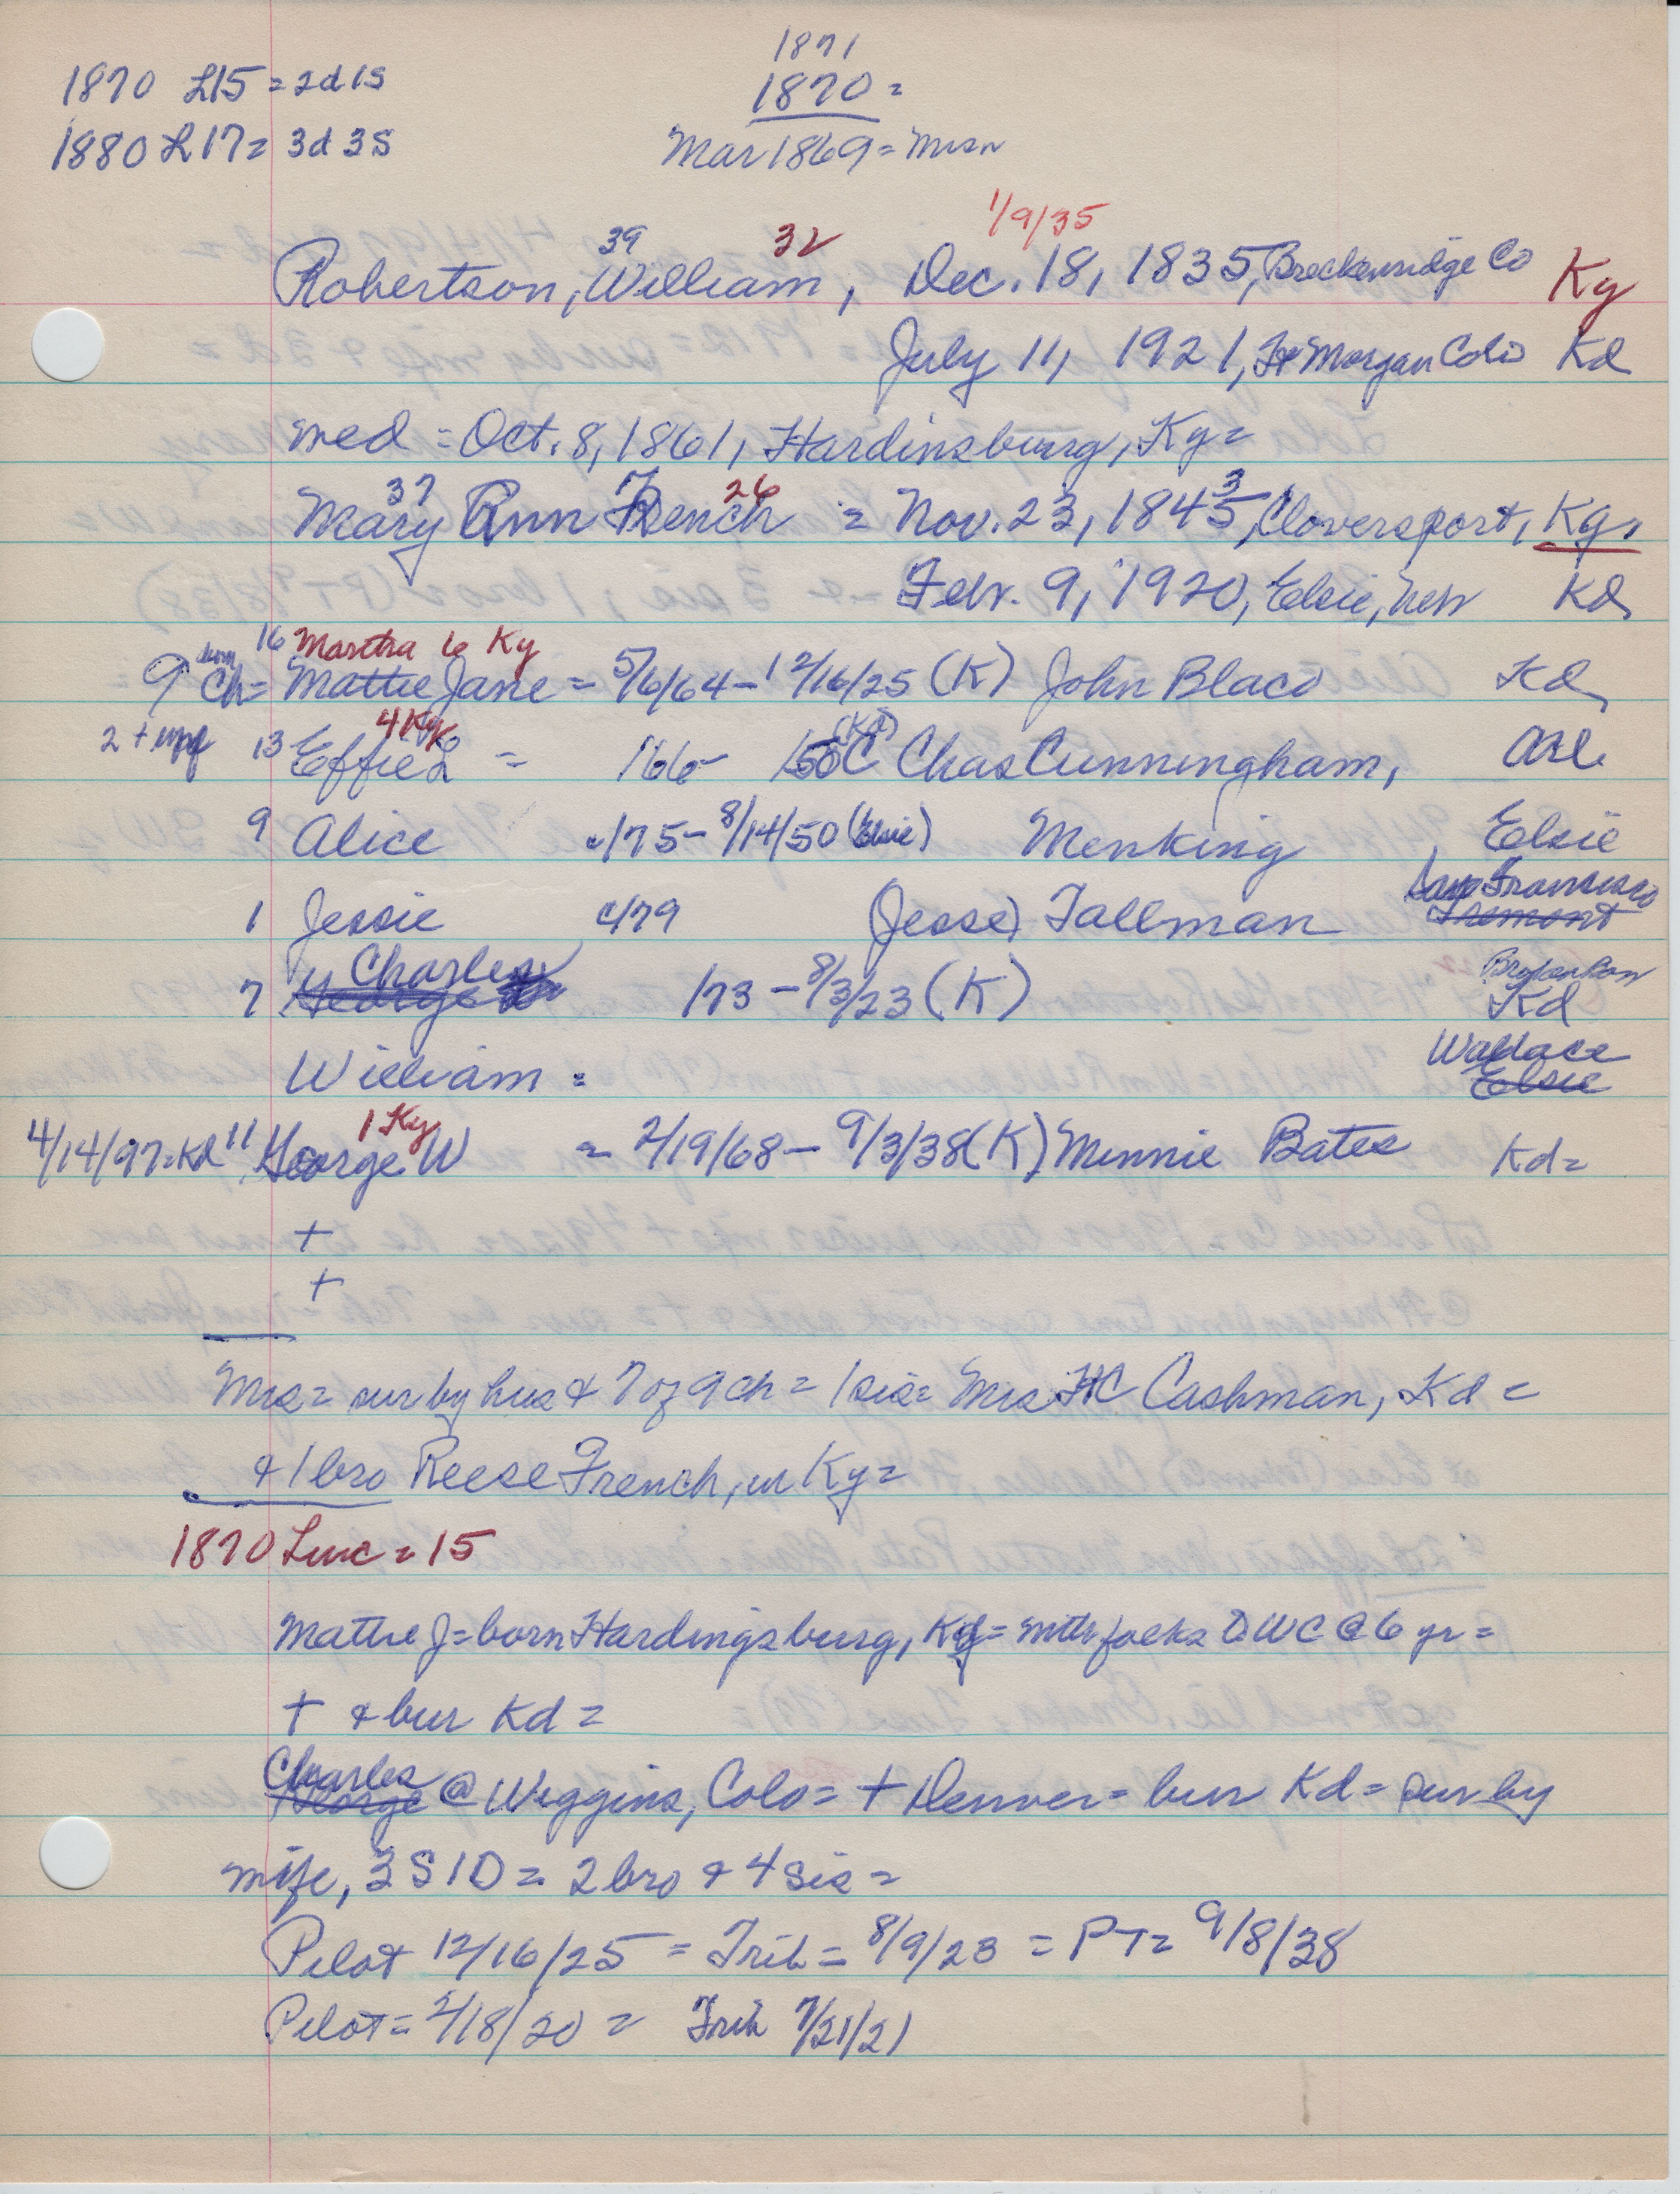 1871
1870 L15 = 2d 1S
1870 =
1880 L17 = 3d 3S
Mar 1869 =
1/9/35
39 32
Robertson, William, Dec. 18, 1835, Breckenridge Co Ky
July 11, 1921, Ft Morgan Colo Kd
med = Oct. 8, 1861, Hardinsburg, Ky =
37 26 3
Mary Ann French = Nov. 23, 1845, Cloversport, Ky,
Febr. 9, 1920, Elsie, Nebr Kd
16 Martha 6 Ky
9 Ch = Mattie Jane = 5/6/64 - 12/16/25 (K) John Blaco Kd
4 Ky (Kd)
2 + inf 13 Effie L = /66 - /50 C Chas Cunningham,
9 Alice c/75 - 8/14/50 (Elsie) Menking, Elsie
San Francisco
1 Jessie c/79 (Jesse) Tallman Fremont
Charles Broken Bow
7 George W /73 - 8/3/23 (K) Kd
Wallace
William = Elsie
1 Ky
4/14/97 = Kd 11 George W = 2/19/68 - 9/3/38 (K) Minnie Bates Kd =
+
+
Mrs = sur by hus & 7 of 9 ch = 1 sis = Mrs HC Cashman, Kd =
& 1 bro Reese French, in Ky =
1870 Linc = 15
Mattie J = born Hardingsburg, Ky = with folks to WC @ 6 yr =
+ & bur Kd =
Charles
George @ Wiggins, Colo = + Denver = bur Kd = sur by
wife, 3 S 1 D = 2 bro & 4 sis =
Pilot 12/16/25 = Trib = 8/9/23 = PT = 9/8/38
Pilot = 2/18/20 = Trib 7/21/21